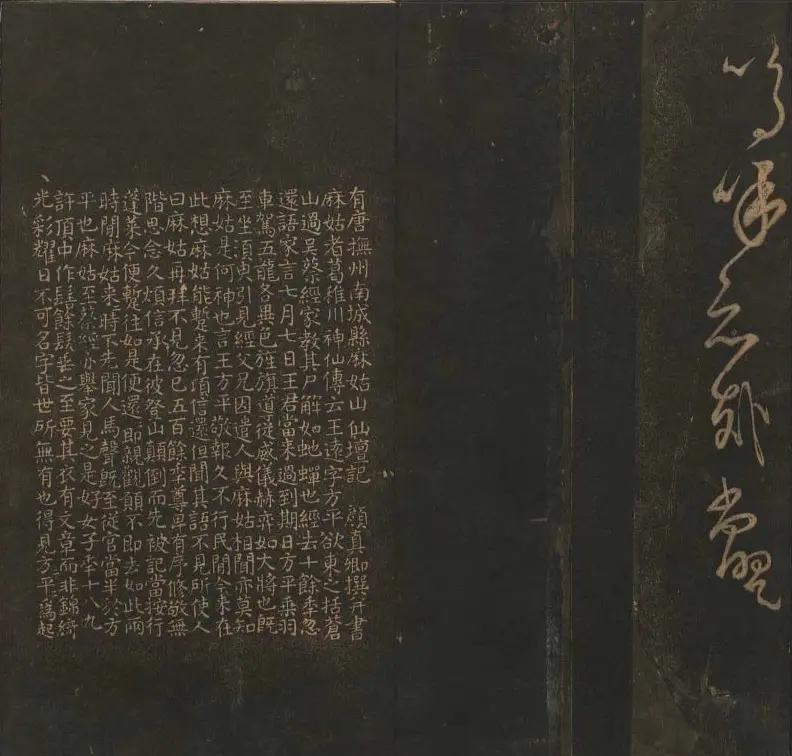 嗚呼哀哉尚饗
有唐撫州南城縣麻姑山仙壇記 顏真卿撰并書
麻姑者葛稚川神仙傳云王遠字方平欲東之括蒼
山過吳蔡經家教其尸解如虵蟬也經去十餘秊忽
還語家言七月七日王君當來過到期日方平乘羽
車駕五龍各異色旌旗導從威儀赫弈如大將也既
至坐須臾引見經父兄因遣人與麻姑相聞亦莫知
麻姑是何神也言王方平敬報久不行民間今來在
此想麻姑能蹔來有頃信還但聞其語不見所使人
曰麻姑再拜不見忽已五百餘秊尊卑有序修敬無
階思念久煩信承在彼登山顛倒而先被記當按行
蓬萊今便蹔往如是便還還即親觀願不即去如此兩
時間麻姑來時不先聞人馬聲既至從官當半於方
平也麻姑至蔡經亦舉家見之是好女子秊十八九
許頂中作髻餘髮垂之至要其衣有文章而非錦綺
光彩耀日不可名字皆世所無有也得見方平為起